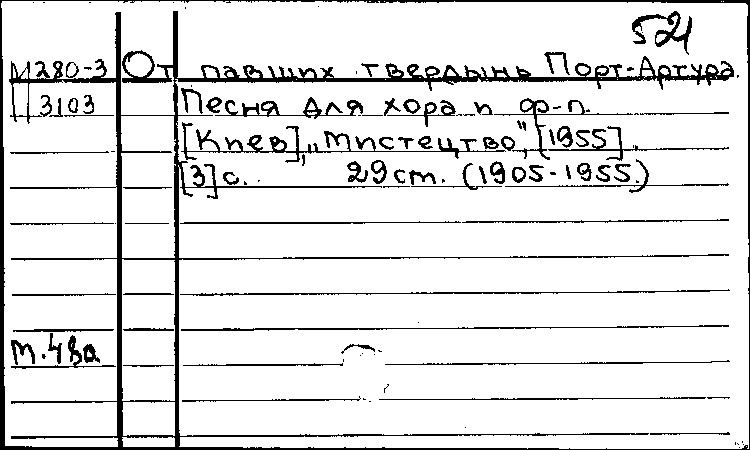 521
М280-3 От павших твердынь Порт-Артура.
3103 Песня для хора и ф-п.
[Киев], „Мистецтво", [1955].
[3] с. 29 см. (1905-1955.)
т.48а